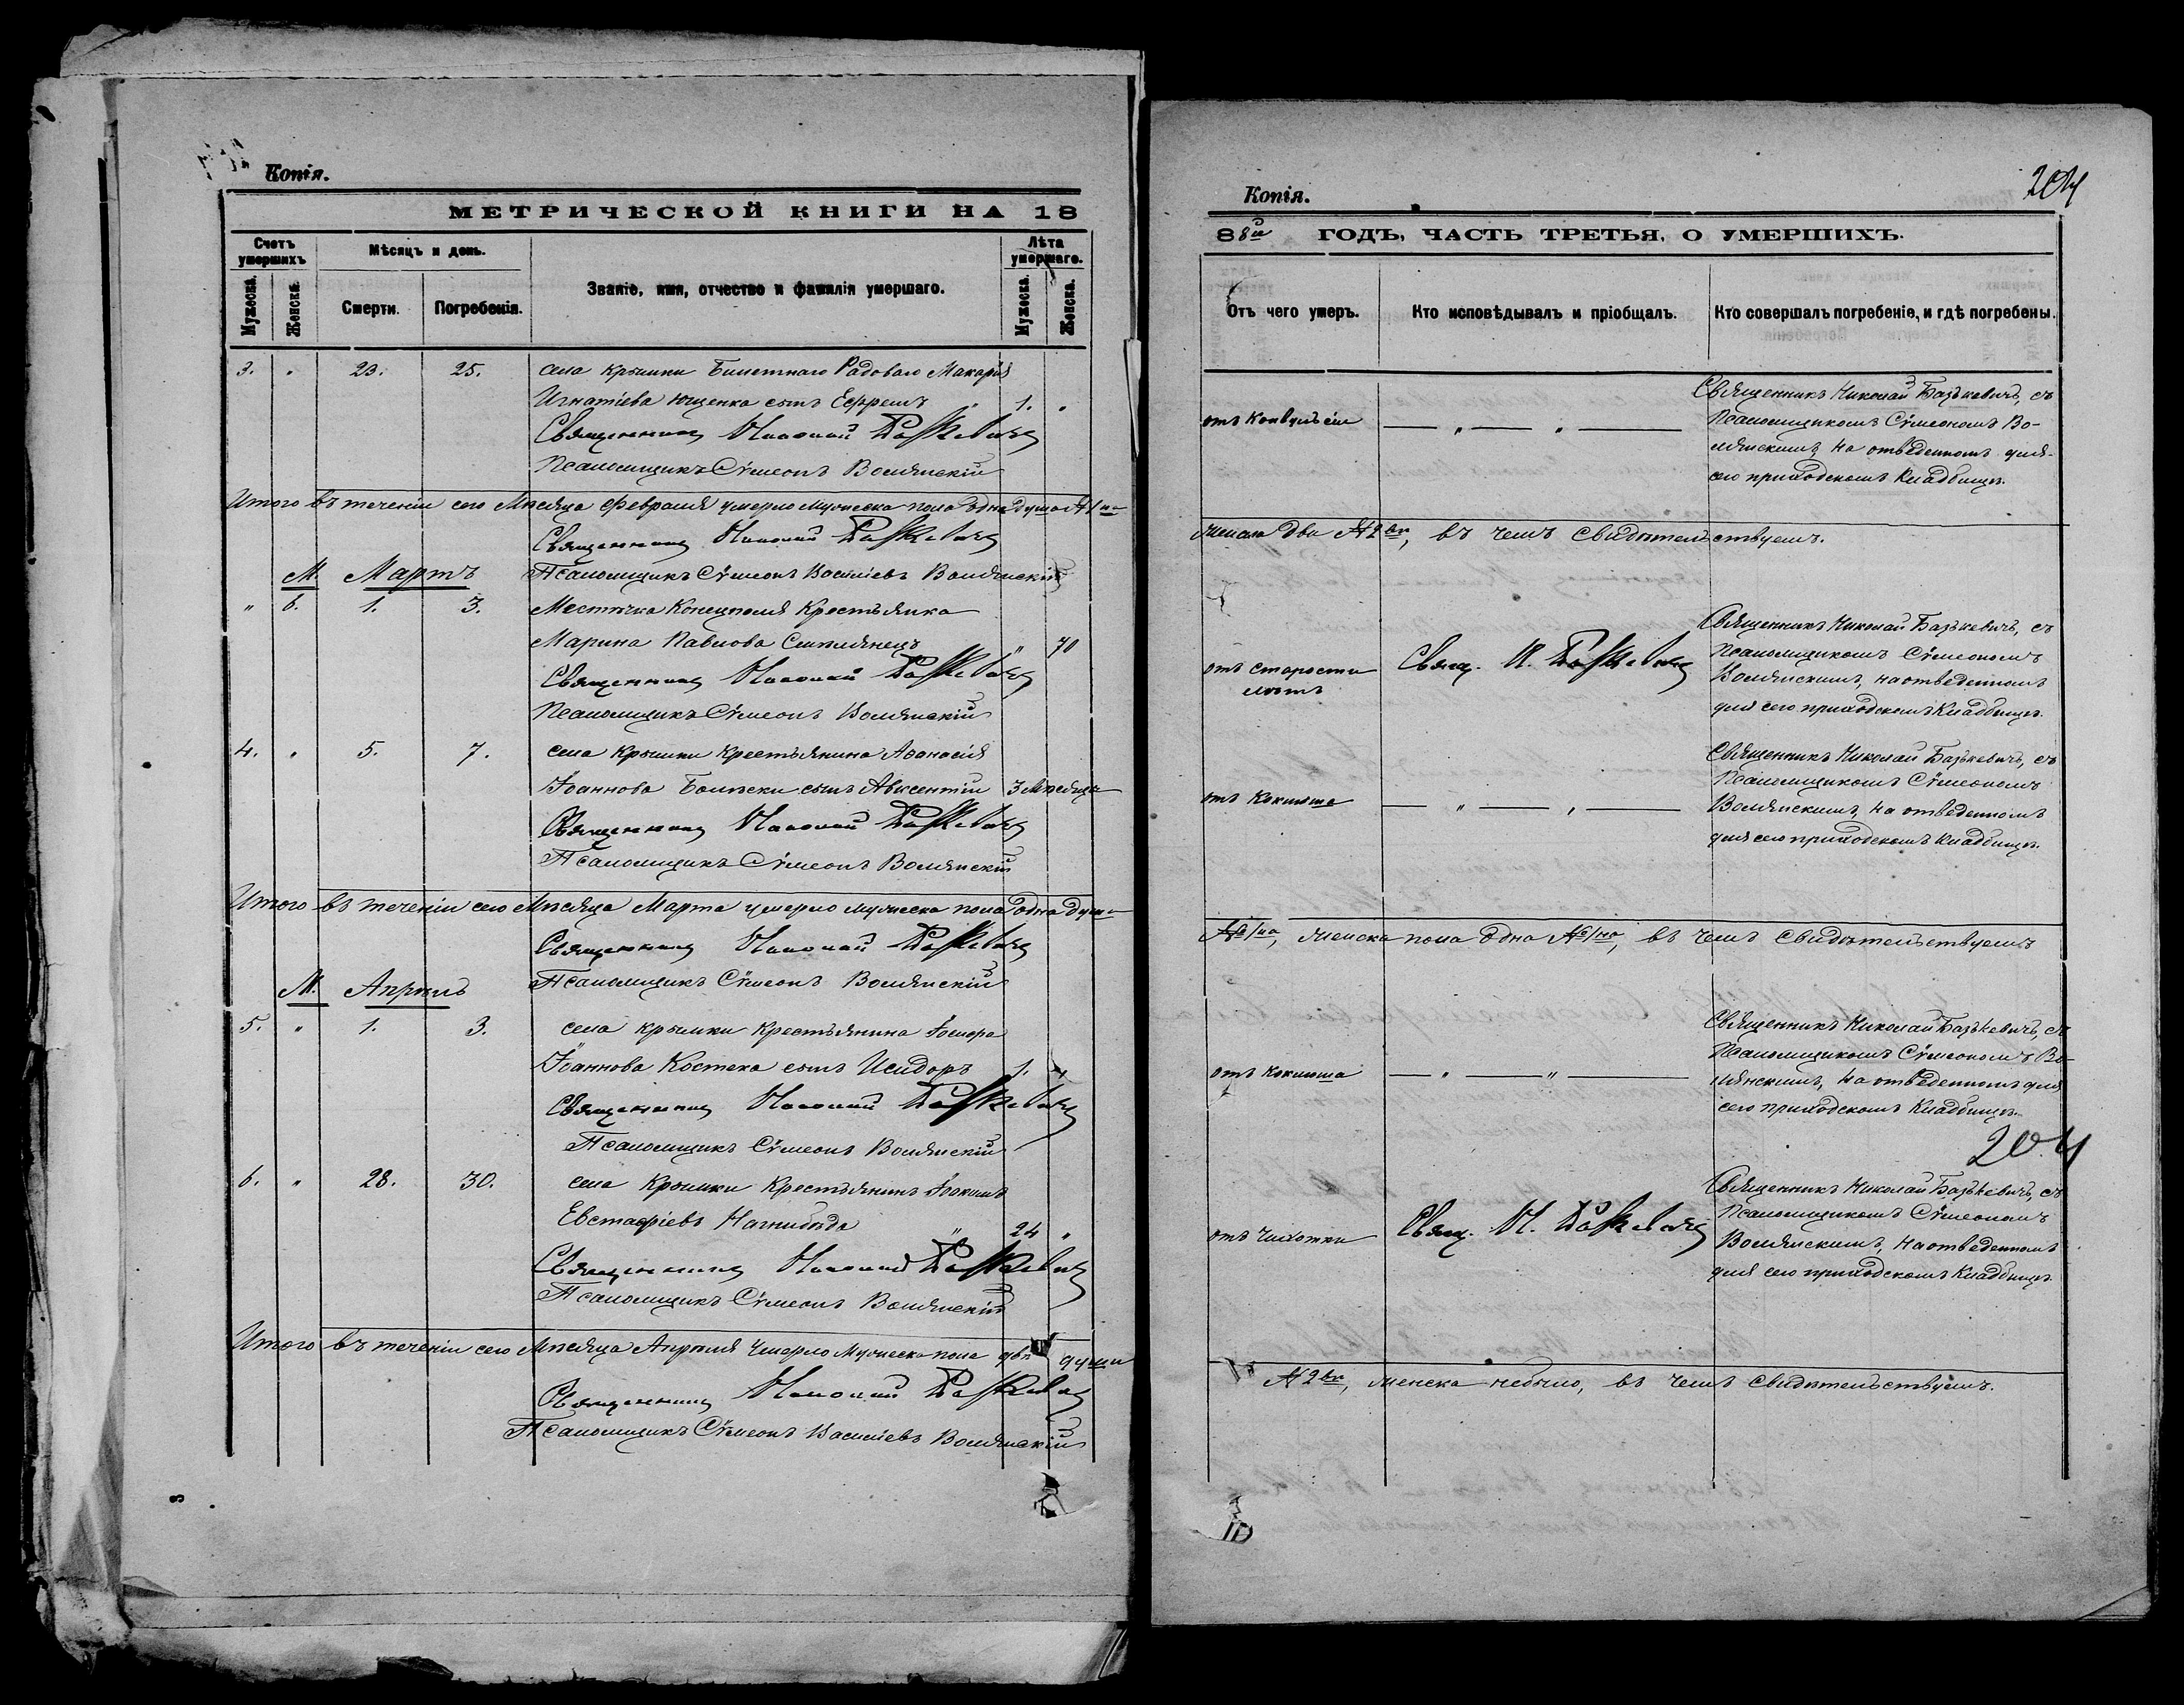 Копія.
МЕТРИЧЕСКОЙ КНИГИ НА 18
Счетъ умершихъ
Мѣсяцъ и день.
Званіе, имя, отчество и фамилія умершаго.
Лѣта умершаго.
Мужеска.
Женска.
Смерти.
Погребенія.
Мужеска.
Женска.
3. " 23. 25. села Крымки Билетнаго Рядоваго Макарія
Игнатіева Ющенка сынъ Ефремъ 1. "
Священникъ Николай Базькевичъ
Псаломщикъ Сѵмеонъ Волянскій
Итого въ теченіи сего Мѣсяца Февраля умерло мужеска пола одна душа № 1на
Священникъ Николай Базькевичъ
М. Мартъ Псаломщикъ Сѵмеонъ Василіевъ Волянскій
" 6. 1. 3. Местечка Конецполя Крестьянка
Марина Павлова " 70
Священникъ Николай Базькевичъ
Псаломщикъ Сѵмеонъ Волянскій
4. " 5. 7. села Крымки Крестьянина Аѳанасія
Іоаннова сынъ Авксентій 3 Мѣсяца
Священникъ Николай Базькевичъ
Псаломщикъ Сѵмеонъ Волянскій
Итого въ теченіи сего Мѣсяца Марта умерло мужеска пола одна душа
Священникъ Николай Базькевичъ
Псаломщикъ Сѵмеонъ Волянскій
М. Апрѣль
5. " 1. 3. села Крымки Крестьянина
Іоаннова Костека сынъ Исидоръ 1. "
Священникъ Николай Базькевичъ
Псаломщикъ Сѵмеонъ Волянскій
6. " 28. 30. села Крымки Крестьянинъ Іоакимъ
Евстафіевъ Нагнибѣда 24 "
Священникъ Николай Базькевичъ
Псаломщикъ Сѵмеонъ Волянскій
Итого въ теченіи сего Мѣсяца Апрѣля умерло мужеска пола двѣ души
Священникъ Николай Базькевичъ
Псаломщикъ Сѵмеонъ Василіевъ Волянскій
Копія.
204
88й ГОДЪ, ЧАСТЬ ТРЕТЬЯ, О УМЕРШИХЪ.
Отъ чего умеръ.
Кто исповѣдывалъ и пріобщалъ.
Кто совершалъ погребеніе, и гдѣ погребены.
отъ Конвульсіи
Священникъ Николай Базькевичъ, съ
Псаломщикомъ Сѵмеономъ Во-
лянскимъ, на отведенномъ для
сего приходскомъ Кладбищѣ.
женска два № 2вѣ, въ чемъ свидѣтельствуемъ.
отъ старости
лѣтъ
Свящ. Н. Базькевичъ
Священникъ Николай Базькевичъ, съ
Псаломщикомъ Сѵмеономъ
Волянскимъ, на отведенномъ
для сего приходскомъ Кладбищѣ.
отъ Коклюша
Священникъ Николай Базькевичъ, съ
Псаломщикомъ Сѵмеономъ
Волянскимъ, на отведенномъ
для сего приходскомъ Кладбищѣ.
№ 1на, женска пола одна № 1на, въ чемъ свидѣтельствуемъ
отъ коклюша
Священникъ Николай Базькевичъ, съ
Псаломщикомъ Сѵмеономъ Во-
лянскимъ, на отведенномъ для
сего приходскомъ Кладбищѣ.
204
отъ чахотки
Свящ. Н. Базькевичъ
Священникъ Николай Базькевичъ, съ
Псаломщикомъ Сѵмеономъ
Волянскимъ, на отведенномъ
для сего приходскомъ Кладбищѣ.
№ 2вѣ, женска небыло, въ чемъ свидѣтельствуемъ.